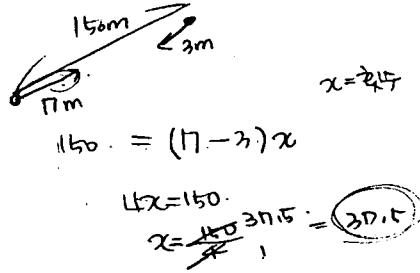 150m
3m
7m
x=횟수
150 = (7-3)x
4x=150
x=150/4 37.5 = 37.5